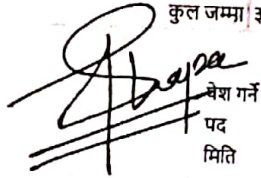 कुल जम्मा
पेश गर्ने
पद
मिति